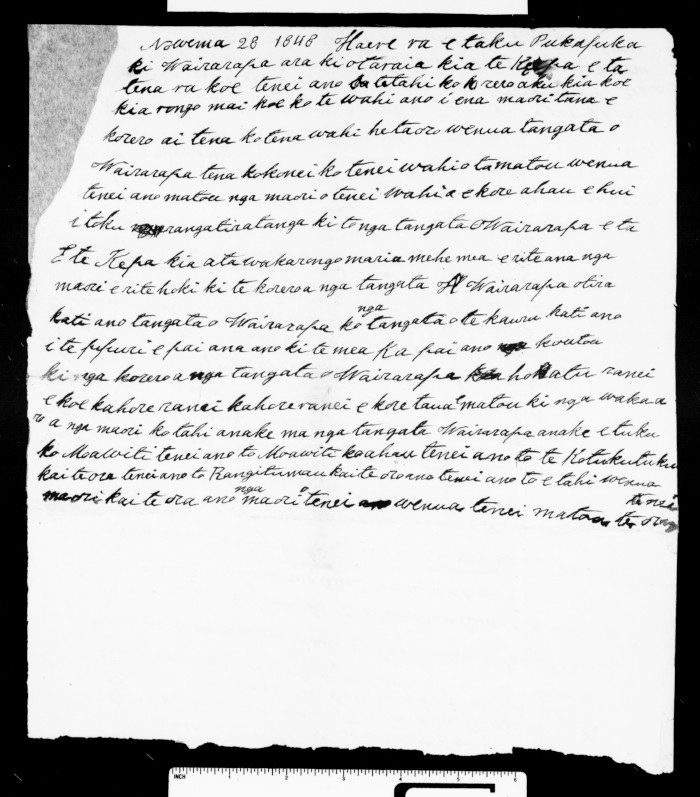 Nowema 28 1848 Haere ra e taku Pukapuka
ki Wairarapa ara ki otaraia kia te Kepa e ta
tena ra koe tenei ano tetahi ko korero aku kia koe
kia rongo mai koe ko te wahi ano i ena maori tana e
korero ai tena ko tena wahi he taoro wenua tangata o
Wairarapa tena ko konei ko tenei wahi o ta matou wenua
tenei ano matou nga maori o tenei wahi e kore ahau e hui
i toku rangatiratanga ki to nga tangata O Wairarapa e ta
E te Kepa kia ata wakarongo maria mehe mea e rite ana nga
maori e rite hoki ki te korero a nga tangata o Wairarapa otira
kati ano tangata o Wairarapa ko nga tangata o te kauru kati ano
i te pupuri e pai ana ano ki te mea ka pai ano koutou
ki nga korero a nga tangata o Wairarapa hokatu ranei
e koe kahore ranei kahore ranei e kore taua e matou ki nga wakaa
ro a nga maori ko tahi anake ma nga tangata Wairarapa anake e tuku
ko Moawiti tenei ano to Moawiti ko ahau tenei ano to te Kotukutuku
kai te ora tenei ano to Rangitumau kai te ora ano tenei ano to e tahi wenua
maori kai te ora ano nga maori o tenei wenua tenei matou te ora